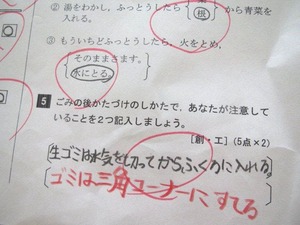 ② 湯をわかし、ふっとうしたら 根 から青菜を入れる。
③ もういちどふっとうしたら、火をとめ、
そのままさます。
水にとる。
5 ごみの後かたづけのしかたで、あなたが注意して
いることを2つ記入しましょう。
[創・工] (5点×2)
生ゴミは水気を切ってから、ふくろに入れる。
ゴミは三角コーナーにすてる